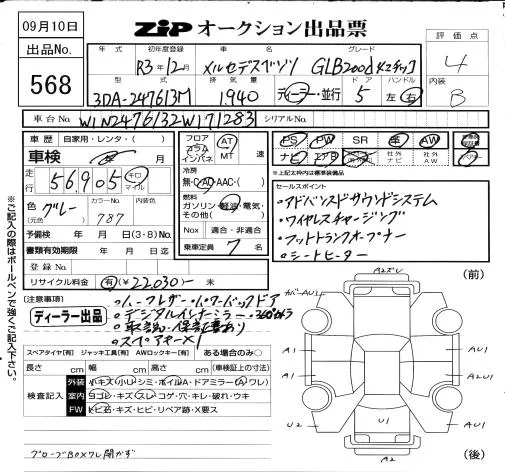 09月10日
ZIP オークション出品票
評価点
出品No.
568
年式 初年度登録 車名 グレード
R3年12月 メルセデスベンツ GLB200d 4マチック
4
型式 排気量 ドア ハンドル
3DA-247613M 1,940 ディーラー・並行 5 左・右
内装
B
車台No. W1N2476132W171283 シリアルNo.
車歴 自家用・レンタ・( )
車検 年 月
走行 56,905 キロ マイル
色 グレー (元色) カラーNo. 787 内装色
予備検 年 月 日(3・8)No.
書類有効期限 年 月 日迄
登録No.
リサイクル料金 有 ¥22,030- 未
フロア コラム インパネ AT MT 速
冷房 無・C・AC・AAC・( )
燃料 ガソリン・軽油・電気・その他( )
Nox 適合・非適合
乗車定員 7 名
PS PW SR 革 AW
ナビ エアB 社外ナビ 社外AW
*上記太枠内は標準装備品
セールスポイント
・アドバンスドサウンドシステム
・ワイヤレスチャージング
・フットトランクオープナー
・シートヒーター
※ご記入の際はボールペンで強くご記入下さい。
注意事項
ディーラー出品
・ハーフレザー・パワーバックドア
・デジタルインナーミラー・360°カメラ
・取説・保証書あり
・スペアキー×1
スペアタイヤ[有] ジャッキ工具[有] AWロックキー[有] ある場合のみ○
長さ cm 幅 cm 高さ cm (車検証上の寸法)
検査記入
外装 小キズ・小U・シミ・ホイルA・ドアミラー(A・ワレ)
室内 ヨゴレ・キズ・スレ・コゲ・穴・キレ・破れ・ウキ
FW トビ石・キズ・ヒビ・リペア跡・X要ス
グローブBOXワレ開かず
(前)
カバーAU1
A1
A1
U2
U1
A1
AU1
A2U1
AU1
A2
(後)